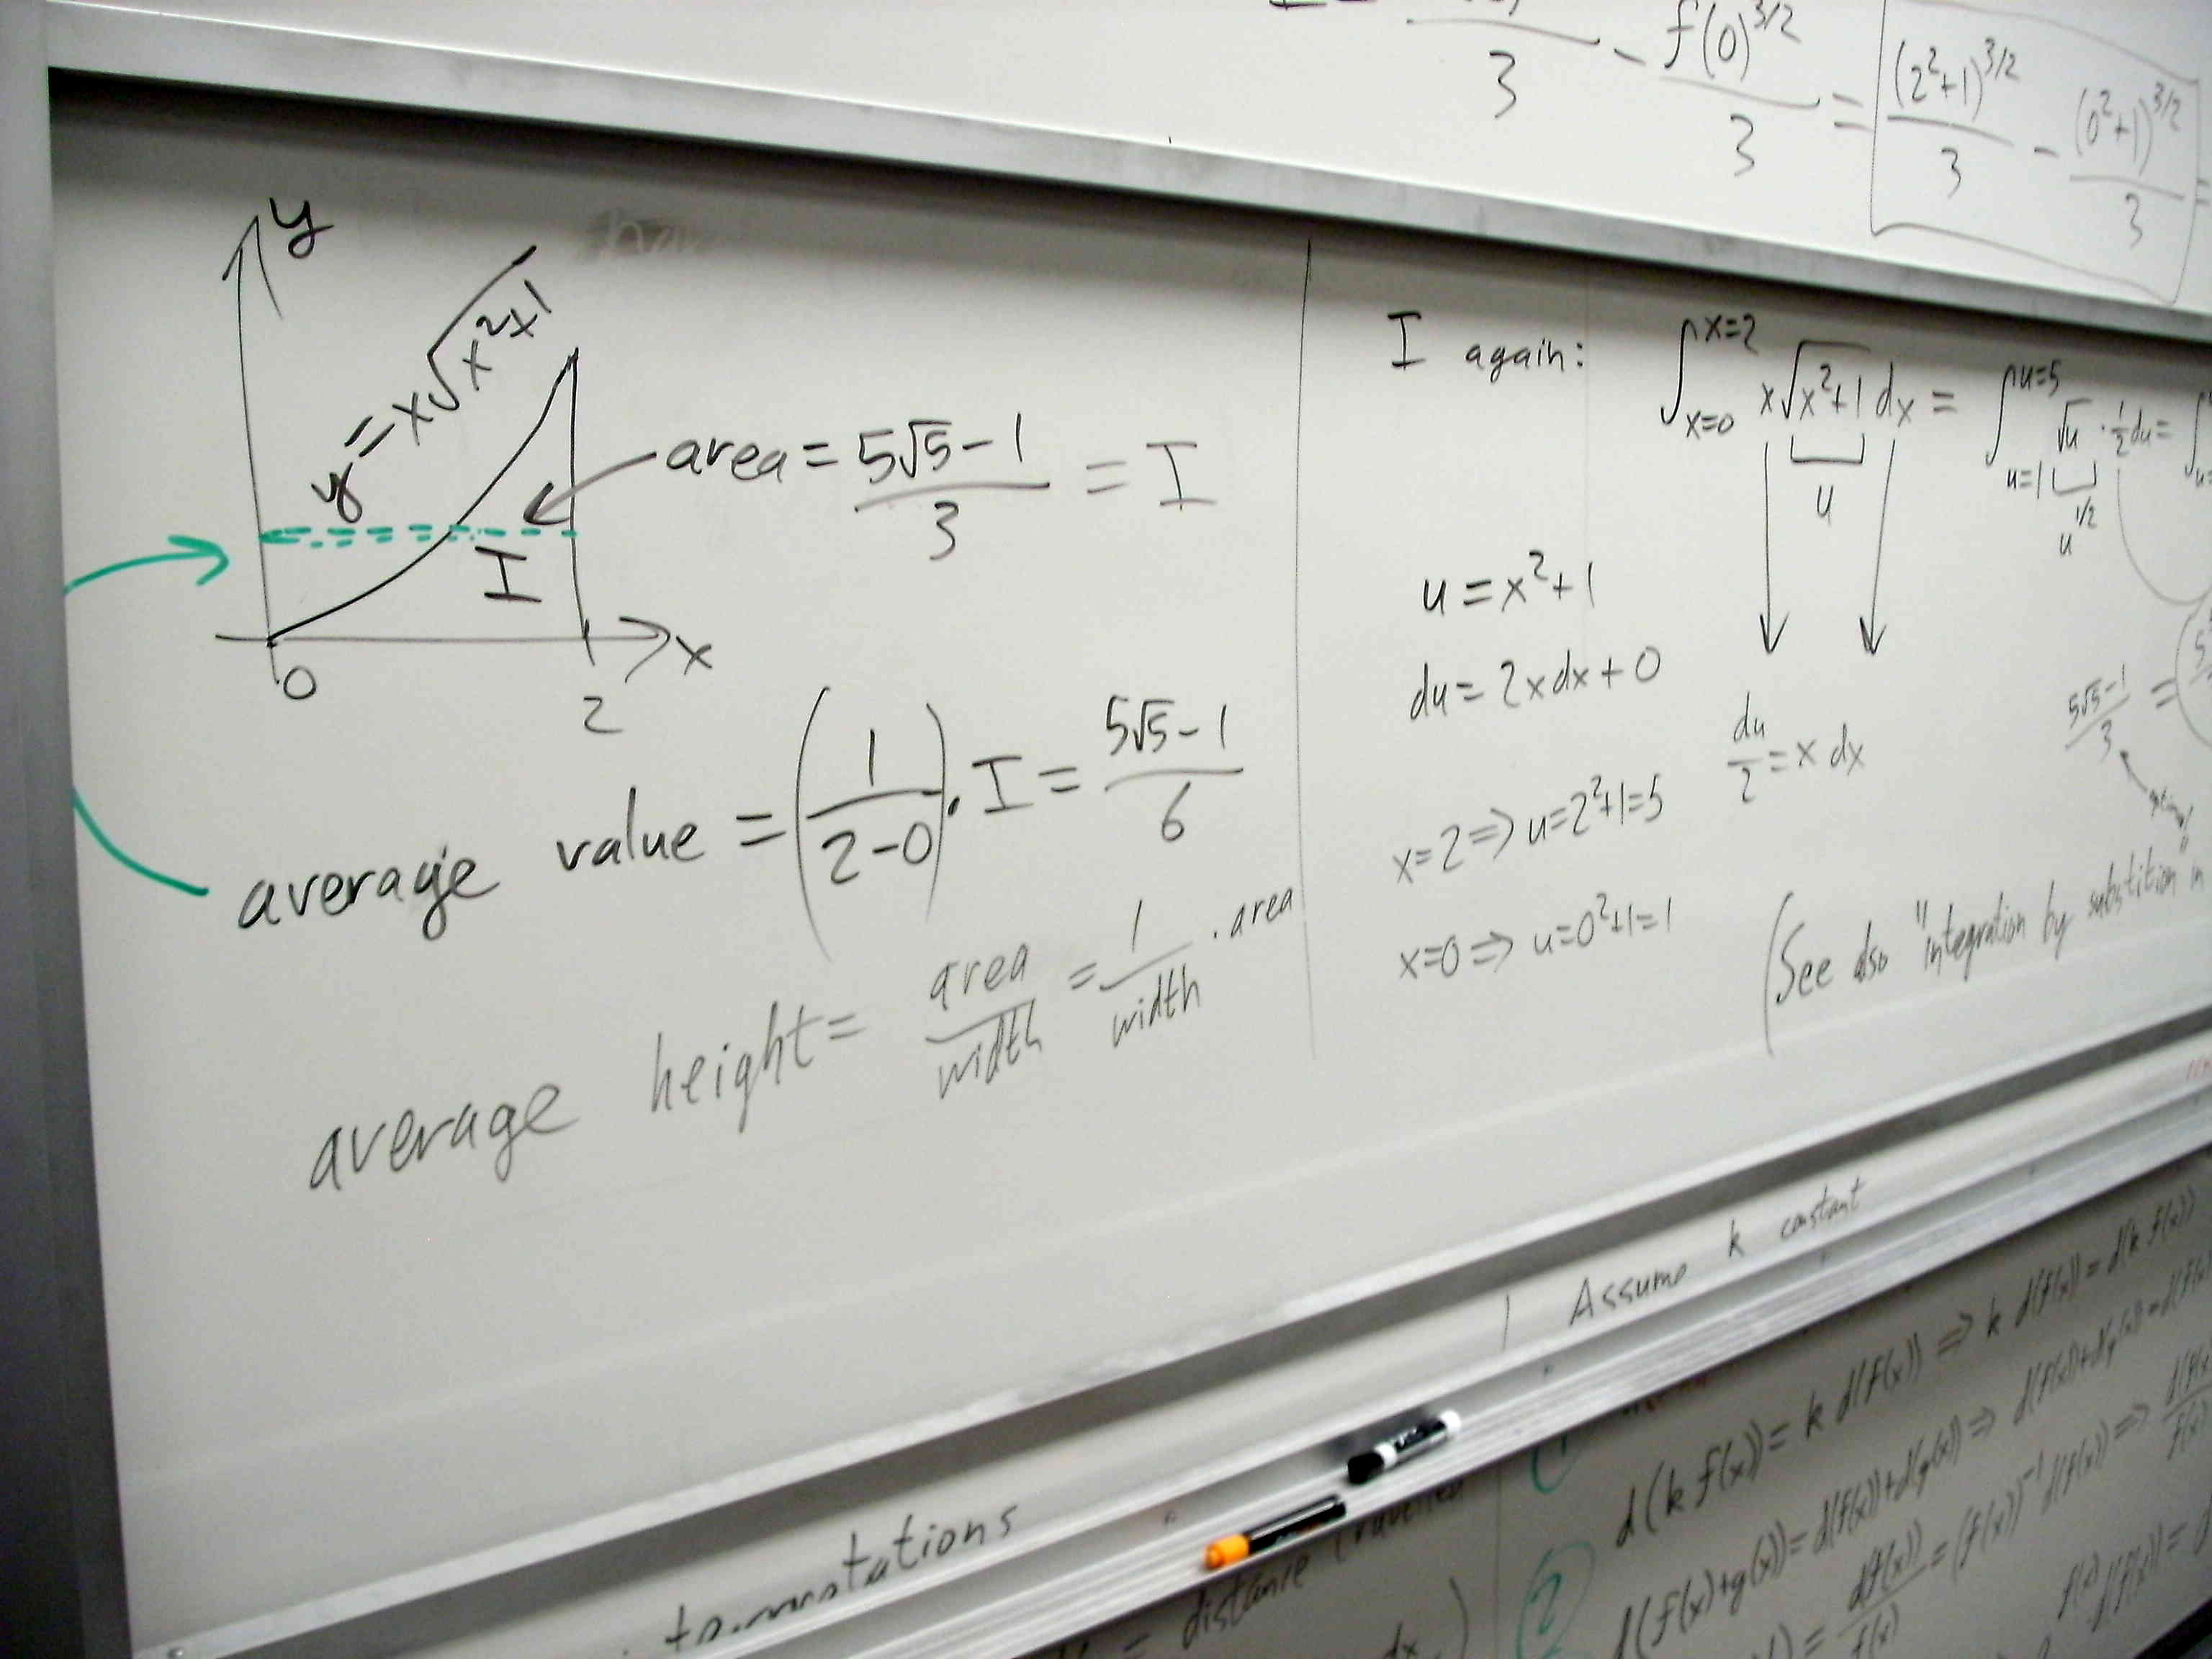 3 - f(0)^3/2 / 3 = (2²+1)^3/2 / 3 - (0²+1)^3/2 / 3 =
y
y = x√x²x1
area = 5√5-1 / 3 = I
I
0 2 x
average value = (1 / 2-0) · I = 5√5-1 / 6
average height = area / width = 1 / width · area
I again: ∫ x=2 x=0 x√x²+1 dx = ∫ u=5 u=1 √u · 1/2 du = ∫
u
u^1/2
u = x²+1
du = 2x dx + 0
du/2 = x dx
5√5-1 / 3 =
x=2 ⇒ u=2²+1=5
x=0 ⇒ u=0²+1=1
(See also "integration by substition" in
Assume k constant
d(k f(x)) = k d(f(x)) ⇒ k d(f(x)) = d(k f(x))
2
d(f(x)+g(x)) = d(f(x))+d(g(x)) ⇒
d(f(x)) / f(x) = (f(x))^-1 d(f(x)) ⇒
= distance
dx